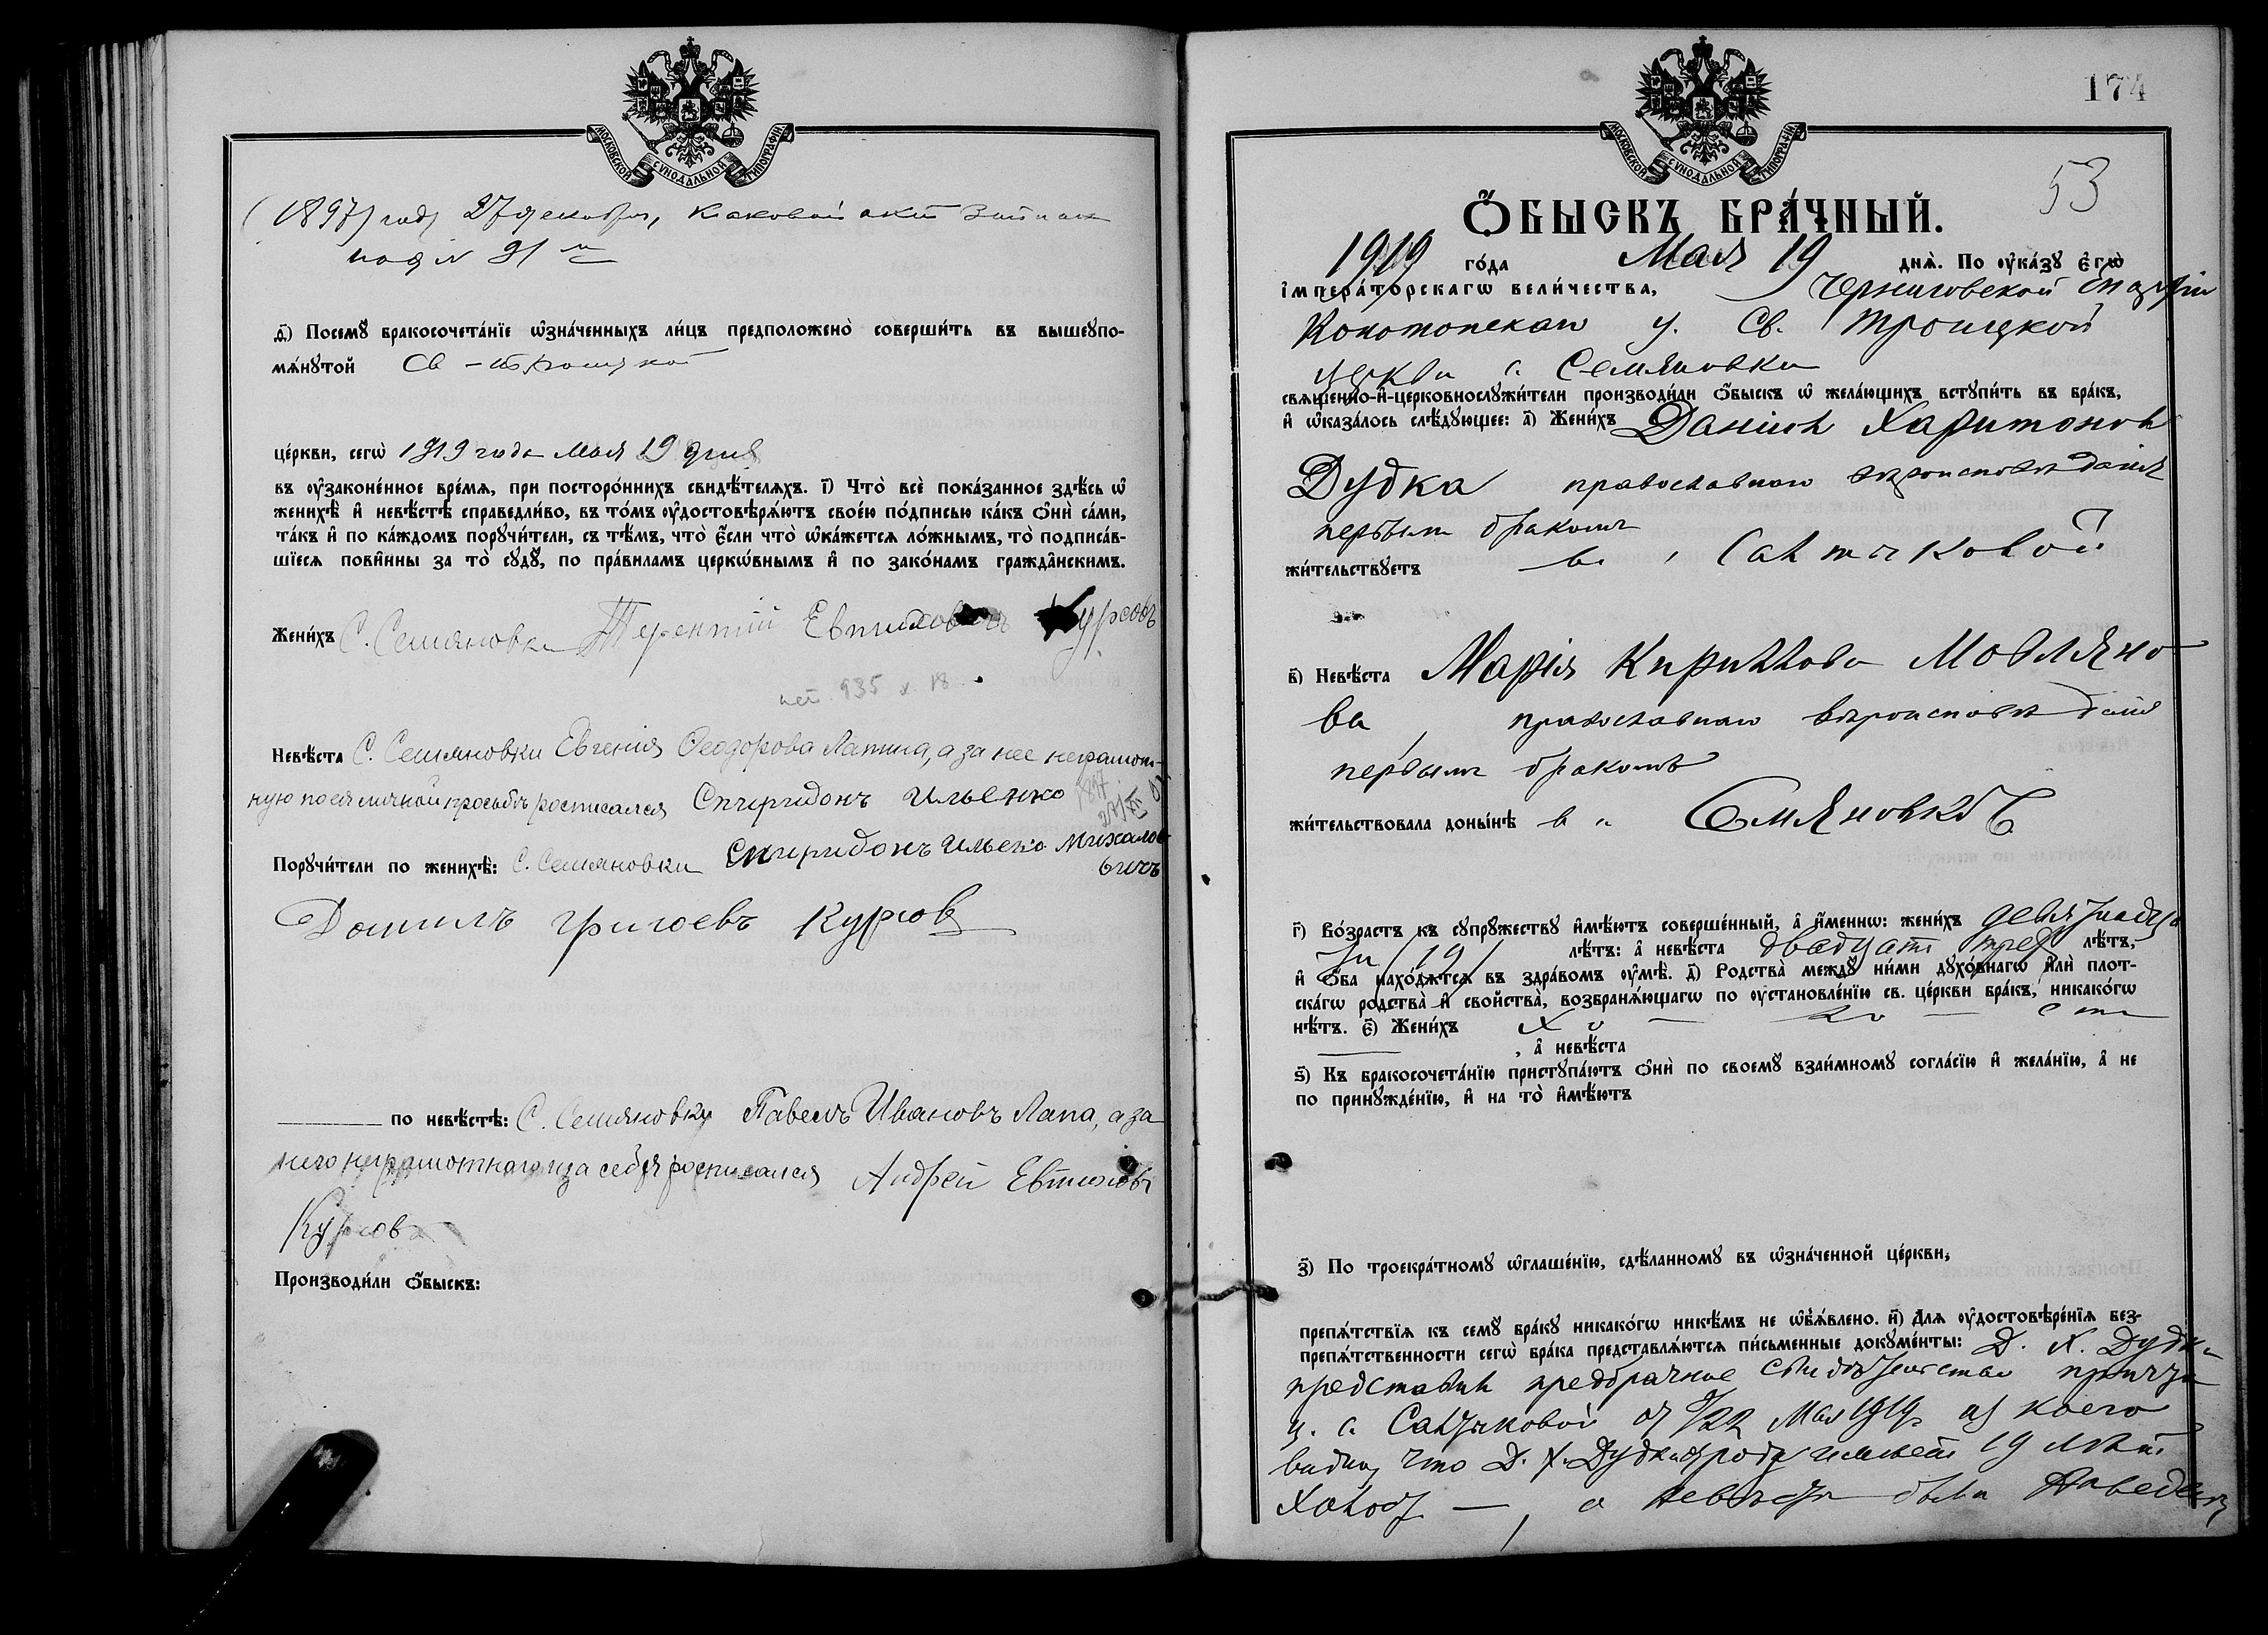 МОСКОВСКОЙ СѴНОДАЛЬНОЙ ТИПОГРАФІИ
(1897) году 27 декабря, каковой актъ записан
под № 91 м
д҃) Посемꙋ̀ бракосочета́нїе ѡ҆зна́ченныхъ ли́цъ предположено̀ соверши́ть въ вышеꙋпо-
мѧ́нꙋтой Св-Троицкой
це́ркви, сегѡ̀ 1919 года Мая 19 дня
въ ᲂу҆законе́нное вре́мѧ, при посторо́ннихъ свидѣ́телѧхъ. і҃) Что̀ всѐ пока́занное здѣ́сь ѡ҆
женихѣ̀ и҆ невѣ́стѣ справедли́во, въ то́мъ ᲂу҆достовѣрѧ́ютъ свое́ю по́дписью ка́къ ѻ҆нѝ са́ми,
та́къ и҆ по ка́ждомъ порꙋчи́тели, съ тѣ́мъ, что̀ є҆́сли что̀ ѡ҆ка́жетсѧ ло́жнымъ, то̀ подписа́в-
шїесѧ пови́нны за то̀ сꙋдꙋ̀, по пра́виламъ церкѡ́внымъ и҆ по зако́намъ гражда̂нскимъ.
Жени́хъ С. Семяновки Терентий Евтихов Курсовъ
935 х 18
Невѣ́ста С. Семяновки Евгения Ѳеодорова Лапина, а за нее неграмот-
ную по ея личной просьбѣ росписался Спиридонъ Ильенко
Порꙋчи́тели по женихѣ̀: С. Семяновки Спиридонъ Ильенко Михалов
вичъ
Данилъ Григоевъ Курсов
по невѣ́стѣ: С. Семяновки Павелъ Ивановъ Лапа, а за
него неграмотнаго и за себя росписался Андрей Евтихов
Курсов
Производи́ли ѻ҆́быскъ:
174
МОСКОВСКОЙ СѴНОДАЛЬНОЙ ТИПОГРАФІИ
53
Ѻ҆́БЫСКЪ БРА́ЧНЫЙ.
1919 го́да Мая 19 днѧ̀. По ᲂу҆ка́зꙋ є҆гѡ̀
і҆мпера́торскагѡ вели́чества, Черниговской епархіи
Конотопскаго у. Св. Троицкой
церкви с. Семяновки
свѧще́нно-и҆-церковнослꙋжи́тели производи́ли ѻ҆́быскъ ѡ҆ жела́ющихъ встꙋпи́ть въ бра́къ,
и҆ ѡ҆каза́лось слѣ́дꙋющее: а҃) Жени́хъ Даніил Харитонов
Дудка православнаго вѣроисповѣданія
первым бракомъ
жи́тельствꙋетъ в с. Салтыковой
в҃) Невѣ́ста Марія Кириллова Мовляно
ва, православнаго вѣроисповѣданія
первымъ бракомъ
жи́тельствовала доны́нѣ в с. Семяновкѣ
г҃) Во́зрастъ къ сꙋпрꙋ́жествꙋ и҆мѣ́ютъ соверше́нный, а҆ и҆́меннѡ: жени́хъ девятнадца
ти (19) лѣ́тъ: а҆ невѣ́ста двадцати трех лѣ́тъ,
и҆ ѻ҆́ба нахо́дѧтсѧ въ здра́вомъ ᲂу҆мѣ̀. д҃) Родства̀ междꙋ̀ ни́ми дꙋхо́внагѡ и҆лѝ плот-
ска́гѡ родства̀ и҆ сво́йства̀, возбранѧ́ющагѡ по ᲂу҆становле́нїю св. це́ркви бра́къ, никако́гѡ
нѣ́тъ. є҃) Жени́хъ Х о — ло — ст
, а҆ невѣ́ста
ѕ҃) Къ бракосочета́нїю пристꙋпа́ютъ ѻ҆нѝ по своемꙋ̀ взаи́мномꙋ согла́сїю и҆ жела́нїю, а҆ не
по принꙋжде́нїю, и҆ на то̀ и҆мѣ́ютъ
з҃) По троекра́тномꙋ ѡ҆глаше́нїю, сдѣ́ланномꙋ въ ѡ҆зна́ченной це́ркви,
препѧ́тствїѧ къ семꙋ̀ бра́кꙋ никако́гѡ никѣ́мъ не ѡ҆б̾ѧ́влено. и҃) Длѧ ᲂу҆достовѣре́нїѧ без-
препѧ́тственности сегѡ̀ бра́ка представлѧ́ютсѧ пи́сьменные докꙋме́нты: Д. Х. Дудка
представил предбрачное свидѣтельство причта
ц. с. Салтыковой от 9/22 Мая 1919 из коего
видно, что Д. Х. Дудка отроду имѣет 19 лѣтъ
Холост —, а невѣста была